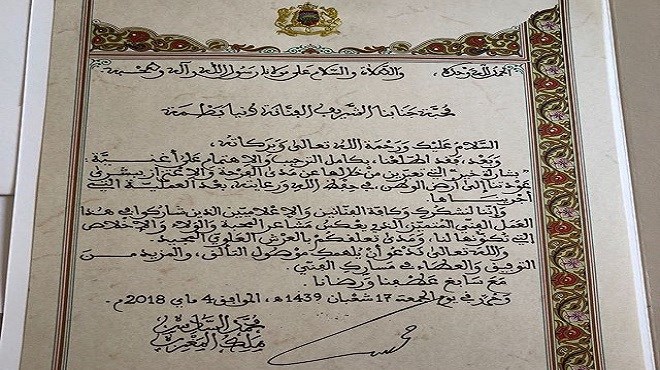 الحمد لله وحده، والصلاة والسلام على مولانا رسول الله وآله وصحبه
محبة جنابنا الشريف الفنانة دنيا بطمة
السلام عليك ورحمة الله تعالى وبركاته،
وبعد، فقد اطلعنا، بكامل الترحيب والاهتمام على أغنية
"بشارة خير" التي تعبرين من خلالها عن مدى الفرحة والاعتزاز بيشرى
عودتنا إلى أرض الوطن في حفظ الله ورعايته، بعد العملية التي
أجريناها.
وإننا لنشكرك وكافة الفنانين والإعلاميين الذين شاركوا في هذا
العمل الفني المتميز الذي يعكس مشاعر المحبة والولاء والإخلاص
التي تكنونها لنا، ومدى تعلقكم بالعرش العلوي المجيد.
والله تعالى ندعو أن يلهمك موصول التألق، والمزيد من
التوفيق والعطاء في مسارك الفني.
مع سابغ عطفنا ورضانا.
وحرر في يوم الجمعة 17 شعبان 1439 هـ، الموافق 4 ماي 2018 م.
محمد السادس
ملك المغرب